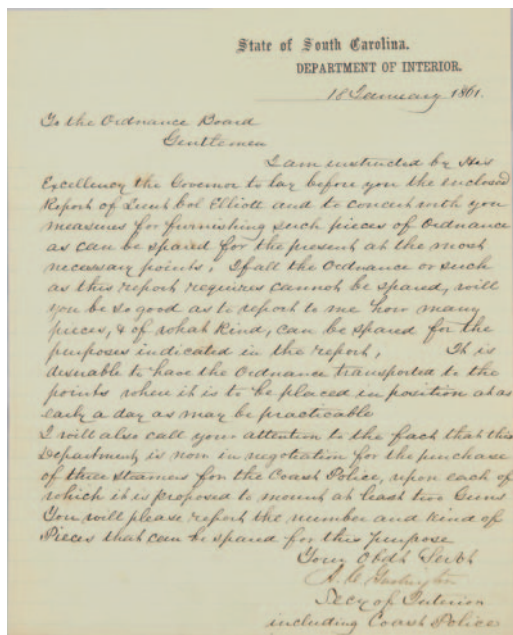 State of South Carolina.
DEPARTMENT OF INTERIOR.
18 January 1861.
To the Ordnance Board
Gentlemen
I am instructed by His
Excellency the Governor to lay before you the enclosed
Report of Lieut Col Elliott and to concert with you
measures for furnishing such pieces of Ordnance
as can be spared for the present at the most
necessary points. If all the Ordnance or such
as this report requires cannot be spared, will
you be so good as to report to me how many
pieces, & of what kind, can be spared for the
purposes indicated in the report. It is
desirable to have the Ordnance transported to the
points where it is to be placed in position at as
early a day as may be practicable
I will also call your attention to the fact that this
Department is now in negotiation for the purchase
of three steamers for the Coast Police, upon each of
which it is proposed to mount at least two Guns
You will please report the number and kind of
Pieces that can be spared for this purpose
Your Obdt Servt
A. C. Garlington
Secy of Interior
including Coast Police